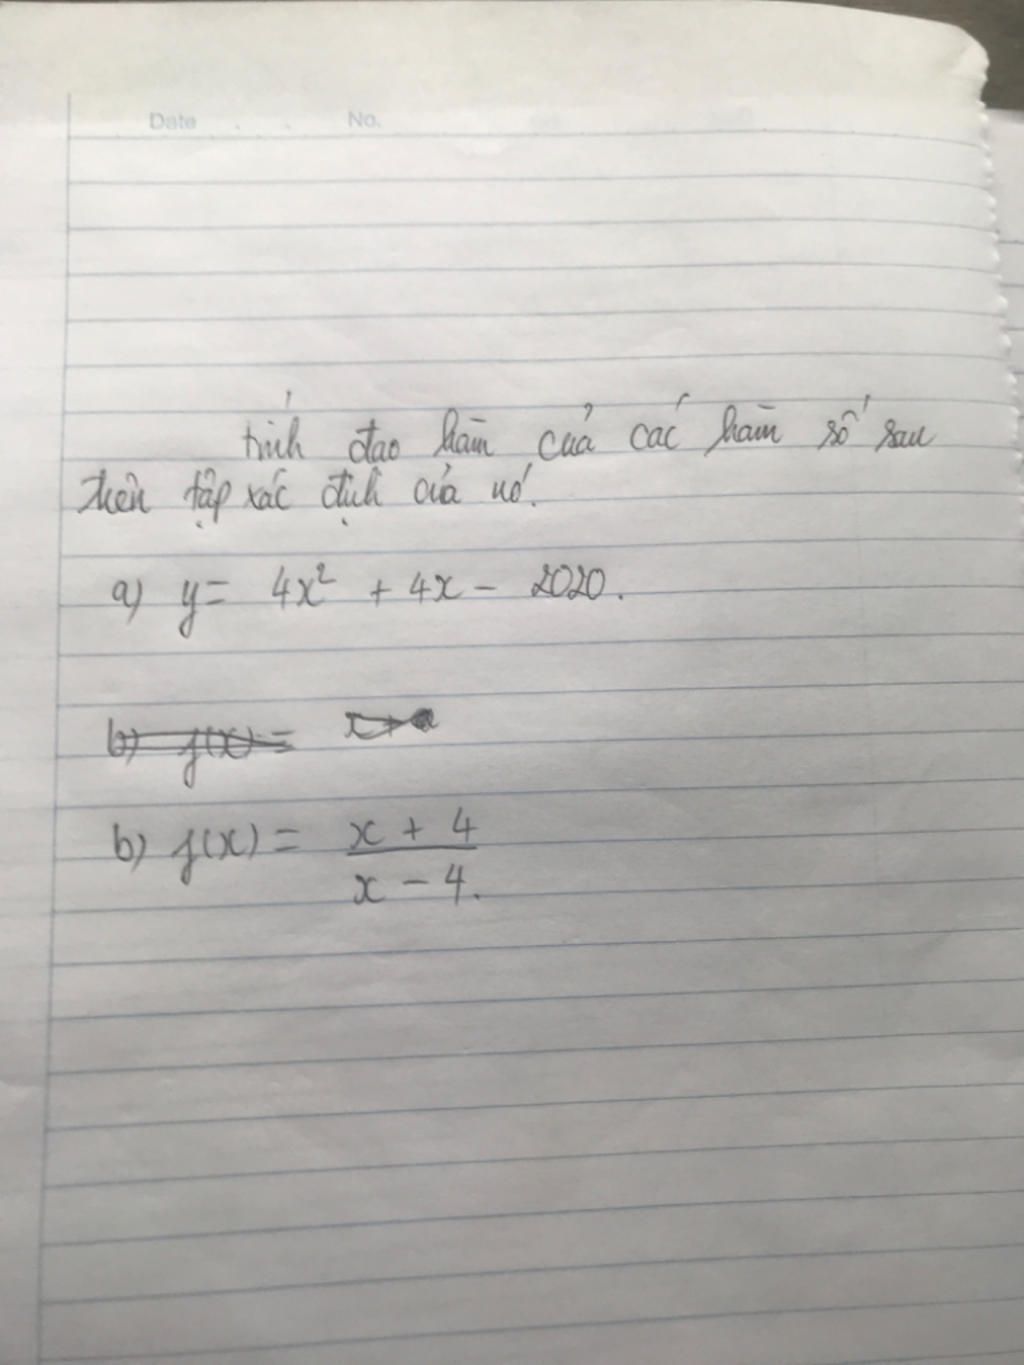 Date . . No.
tính đạo hàm của các hàm số sau
trên tập xác định của nó.
a) y = 4x² + 4x - 2020.
b) f(x) =
b) f(x) = x + 4
x - 4.